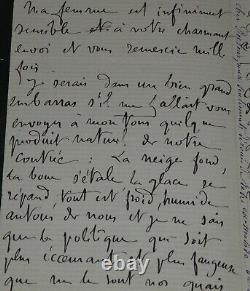 Ma femme est infiniment
sensible à votre charmant
envoi et vous remercie mille
fois.
Je serais dans un bien grand
embarras s'il me fallait vous
envoyer à mon tour quelque
produit naturel de notre
contrée : La neige fond,
la boue s'étale la glace se
répand, tout est froid, humide
autour de nous et je ne sais
que la politique qui soit
plus écœurante et plus fangeuse
que ne le sont nos quais